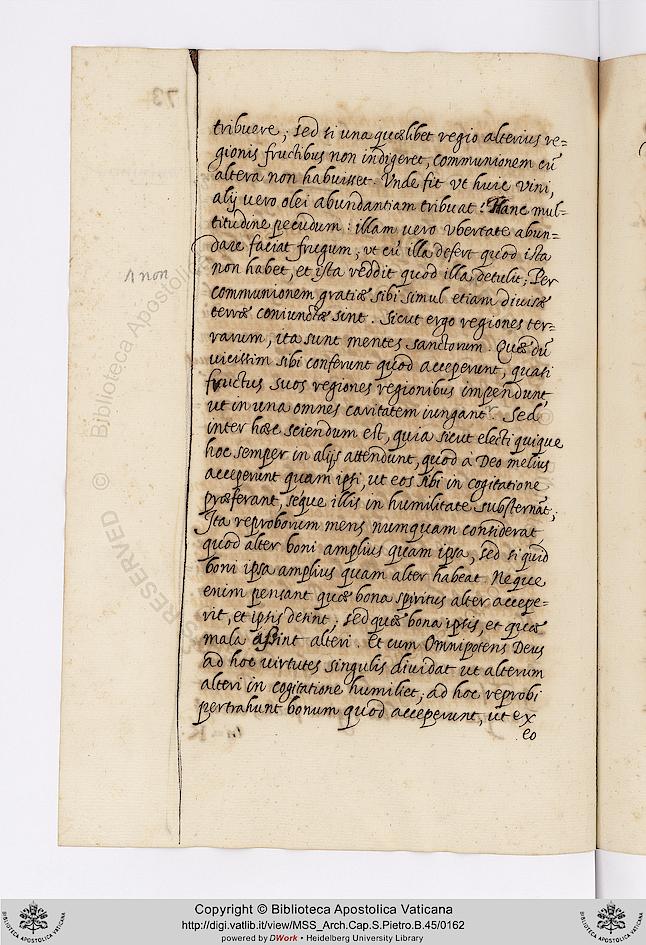 tribuere; sed si una quælibet regio alterius re=
gionis fructibus non indigeret, communionem cū
altera non habuisset. Vnde fit vt huic vini,
alij vero olei abundantiam tribuat: Hanc mul=
titudine pecudum: illam vero vbertate abun=
dare faciat frugum, vt cū illa defert quod ista
non habet, et ista reddit quod illa detulit; Per
1 non
communionem gratiæ sibi simul etiam divisæ
terræ coniunctæ sint. Sicut ergo regiones ter=
rarum, ita sunt mentes sanctorum. Quæ dū
vicissim sibi conferunt quod acceperunt, quasi
fructus suos regiones regionibus impendunt
ut in una omnes caritatem iungant. Sed
inter hæc sciendum est, quia sicut electi quique
hoc semper in alijs attendunt, quod à Deo melius
acceperunt quam ipsi, ut eos sibi in cogitatione
præferant, seque illis in humilitate substernāt;
Ita reproborum mens numquam considerat
quod alter boni amplius quam ipsa, sed si quid
boni ipsa amplius quam alter habeat. Neque
enim pensant quæ bona spiritus alter accepe=
rit, et ipsis desint; sed quæ bona ipsis, et quæ
mala assint alteri. Et cum Omnipotens Deus
ad hoc virtutes singulis dividat ut alterum
alteri in cogitatione humiliet, ad hoc reprobi
pertrahunt bonum quod acceperunt, ut ex
eo
73
© Biblioteca Apostolica
RESERVED
Copyright © Biblioteca Apostolica Vaticana
http://digi.vatlib.it/view/MSS_Arch.Cap.S.Pietro.B.45/0162
powered by DWork • Heidelberg University Library